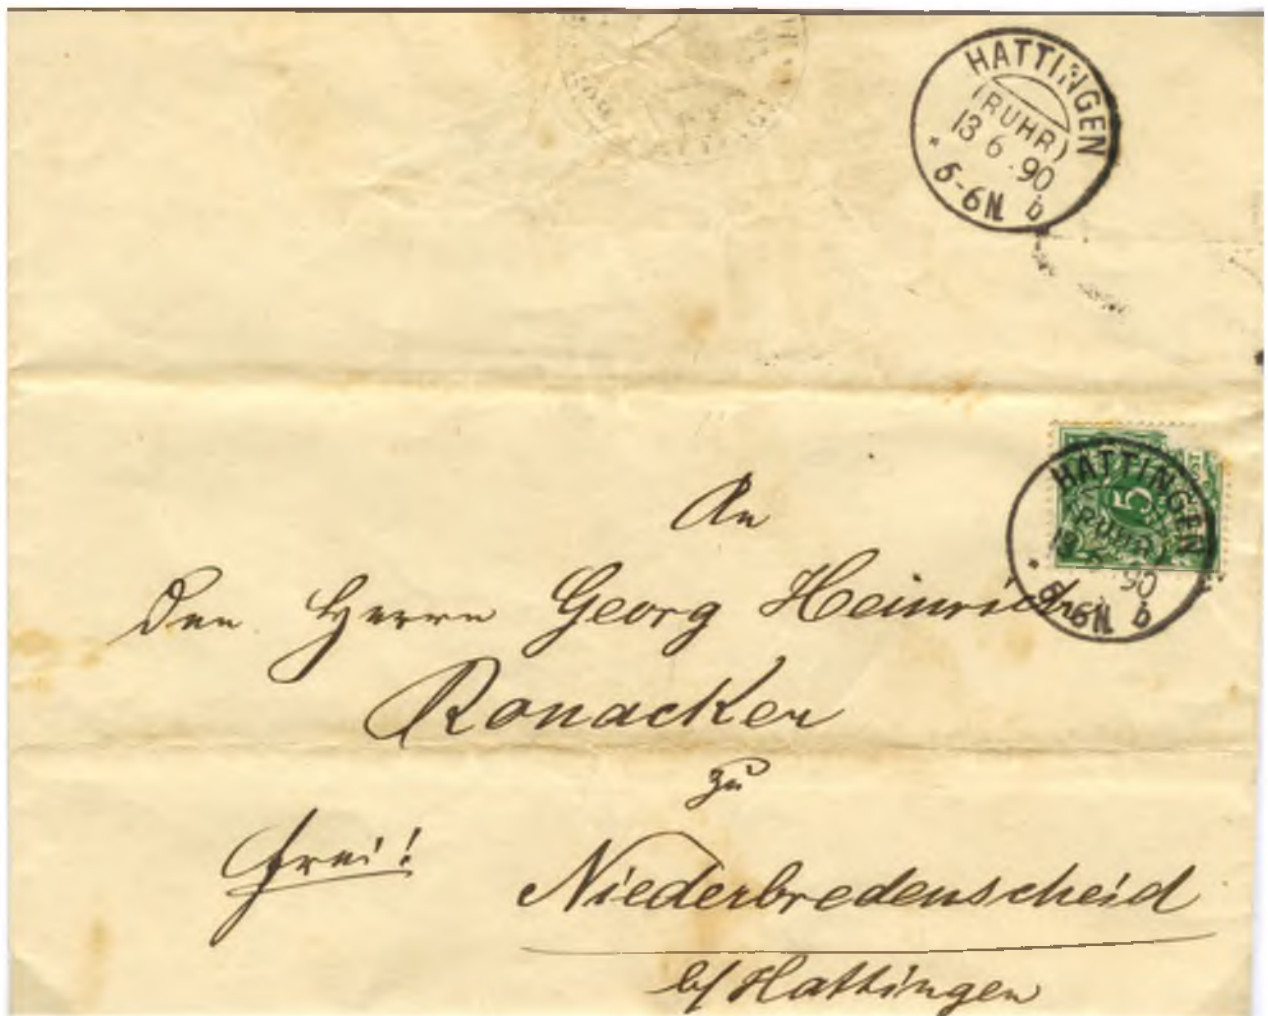 HATTINGEN
(RUHR)
13 6. 90
* 5-6N. b
5
HATTINGEN
(RUHR)
90
* 5-6N. b
An
den Herrn Georg Heinrich
Ronacker
zu
frei!
Niederbredenscheid
b/ Hattingen